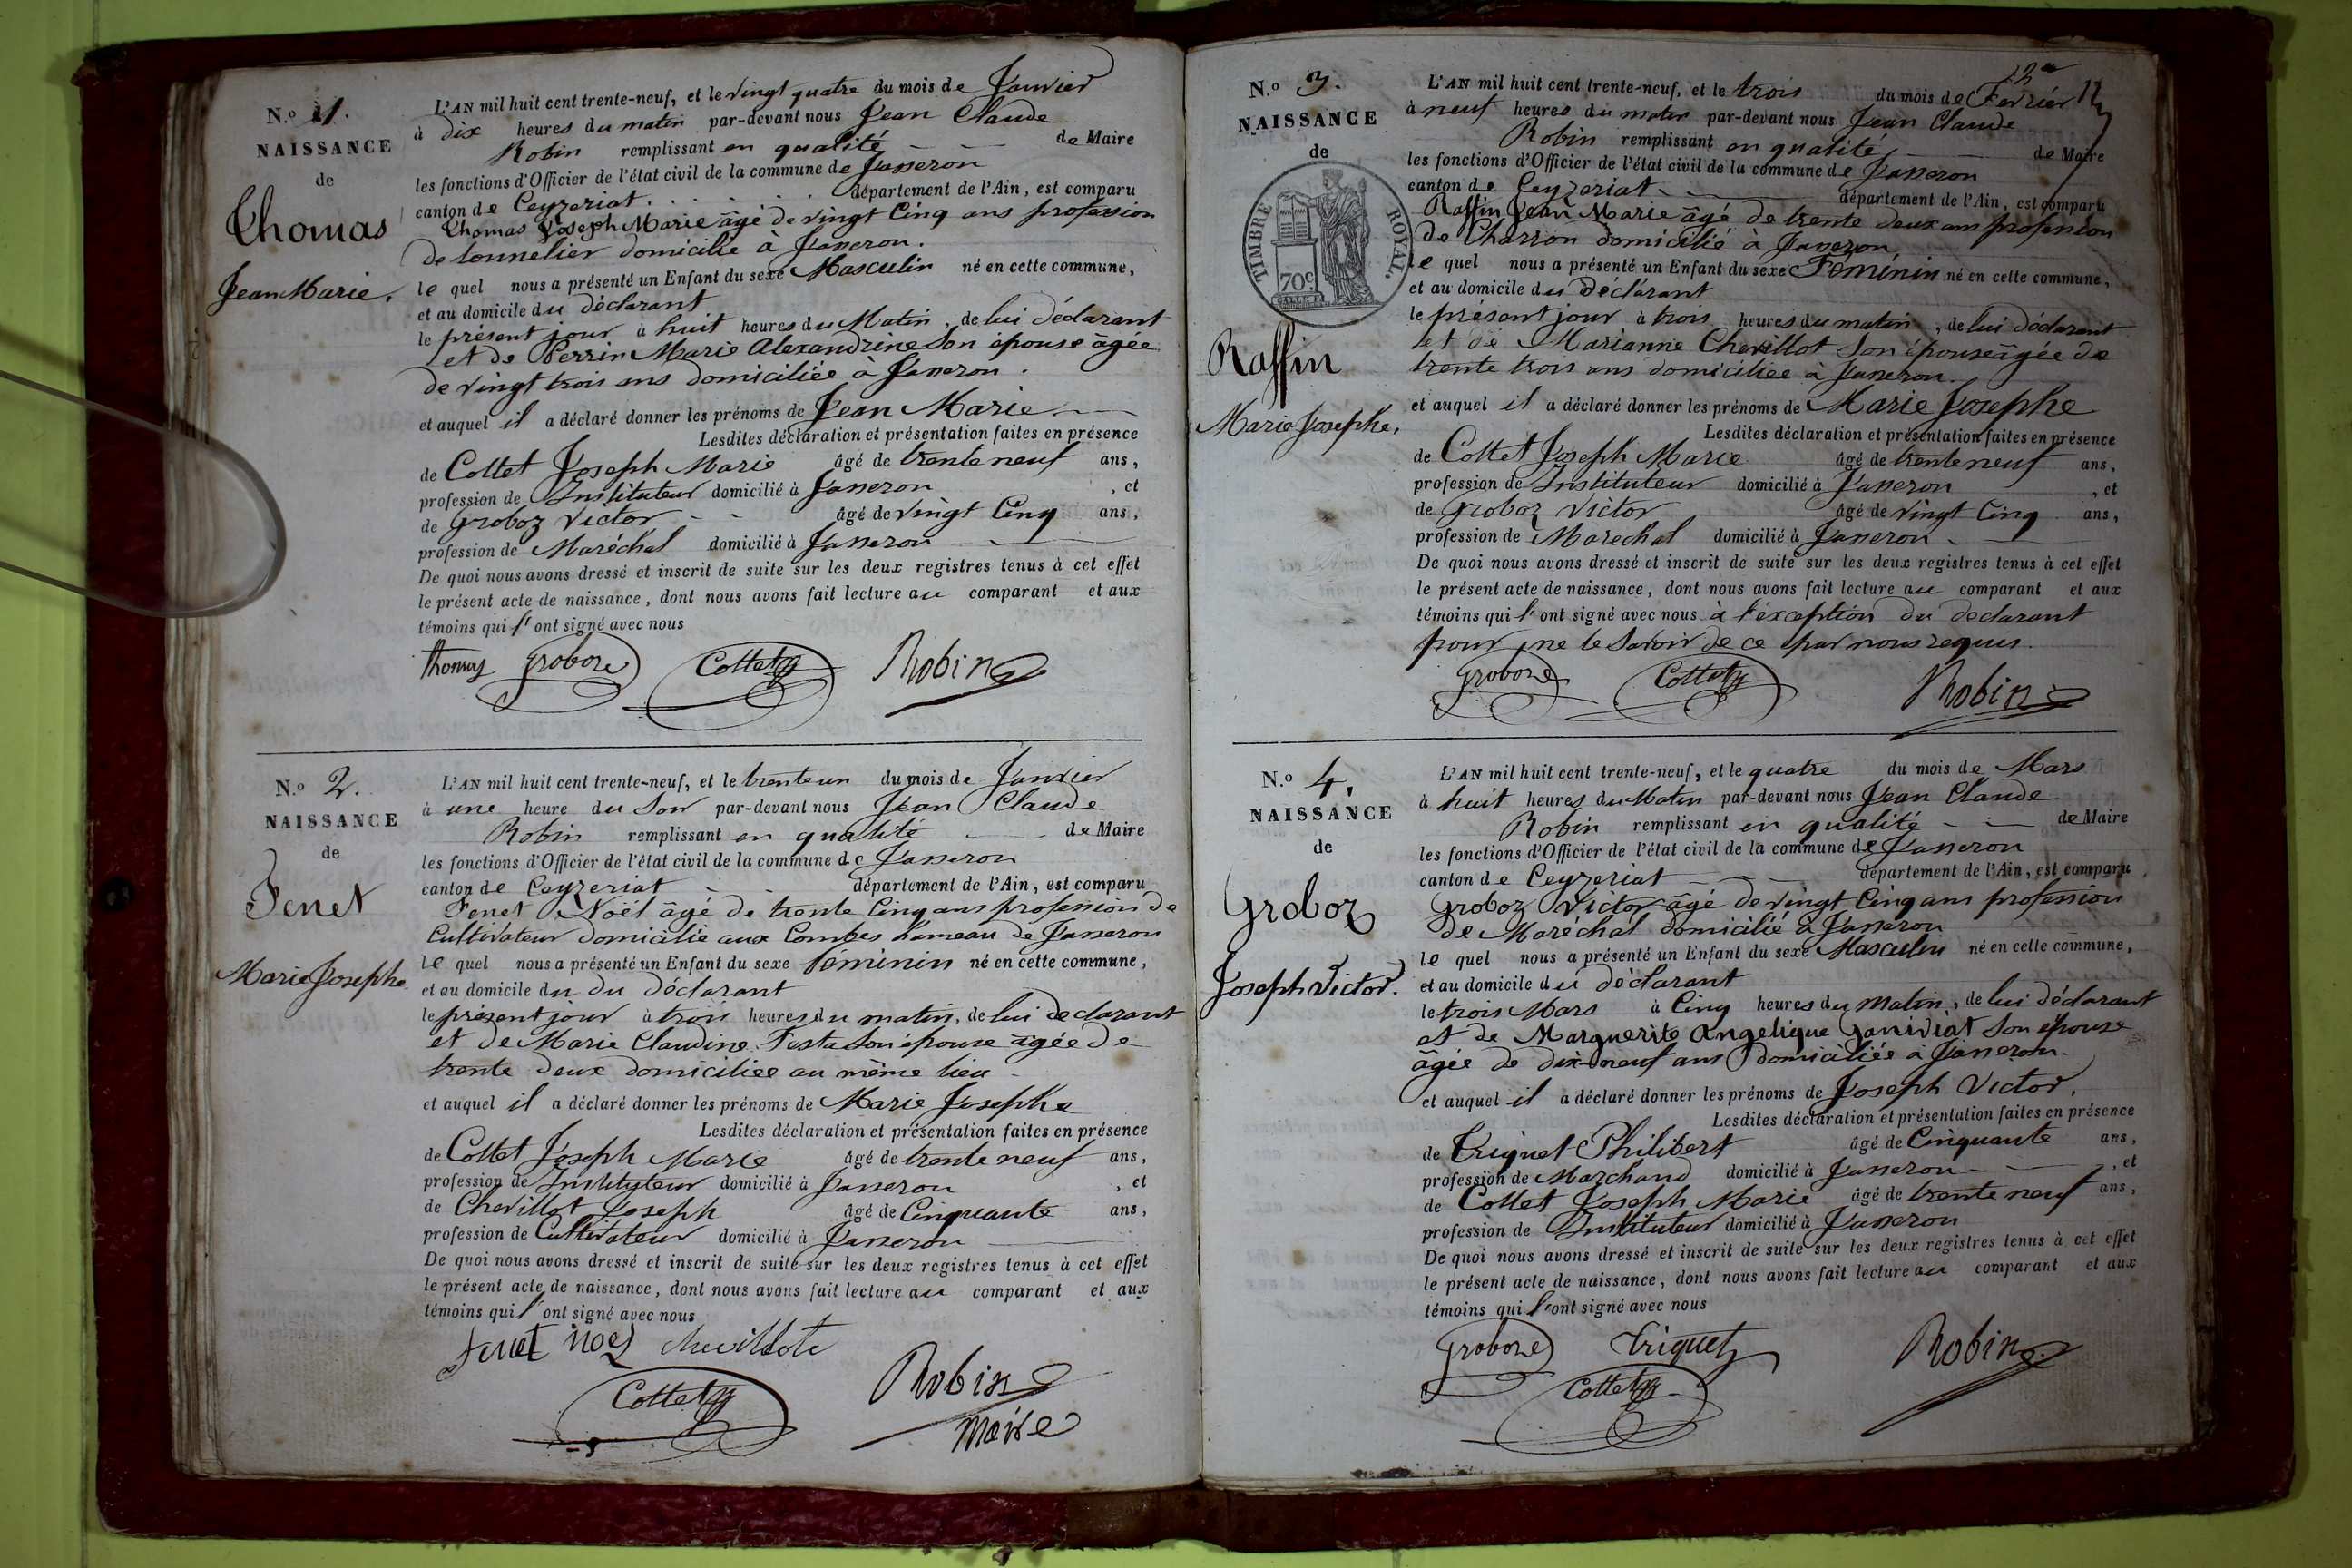 N.o 1.
NAISSANCE
de
Thomas
Jean Marie.
L'AN mil huit cent trente-neuf, et le vingt quatre du mois de Janvier
à dix heures du matin par-devant nous Jean Claude
Robin remplissant en qualité de Maire
les fonctions d'Officier de l'état civil de la commune de Jasseron
canton de Ceyzeriat. département de l'Ain, est comparu
Thomas Joseph Marie âgé de vingt Cinq ans profession
de tonnelier domicilié à Jasseron.
le quel nous a présenté un Enfant du sexe Masculin né en cette commune,
et au domicile du déclarant
le présent jour à huit heures du Matin, de lui déclarant
et de Perrin Marie Alexandrine Son épouse âgée
de vingt trois ans domiciliée à Jasseron.
et auquel il a déclaré donner les prénoms de Jean Marie.
Lesdites déclaration et présentation faites en présence
de Collet Joseph Marie âgé de trente neuf ans,
profession de Instituteur domicilié à Jasseron, et
de Groboz Victor âgé de vingt Cinq ans,
profession de Maréchal domicilié à Jasseron
De quoi nous avons dressé et inscrit de suite sur les deux registres tenus à cet effet
le présent acte de naissance, dont nous avons fait lecture au comparant et aux
témoins qui l'ont signé avec nous
Thomas Groboz Collet Robin
N.o 2.
NAISSANCE
de
Fenet
Marie Josephe
L'AN mil huit cent trente-neuf, et le trente un du mois de Janvier
à une heure du Soir par-devant nous Jean Claude
Robin remplissant en qualité de Maire
les fonctions d'Officier de l'état civil de la commune de Jasseron
canton de Ceyzeriat département de l'Ain, est comparu
Fenet Noël âgé de trente Cinq ans profession de
Cultivateur domicilié aux Combes hameau de Jasseron
le quel nous a présenté un Enfant du sexe féminin né en cette commune,
et au domicile du du déclarant
le présent jour à trois heures du matin, de lui déclarant
et de Marie Claudine Festa Son épouse âgée de
trente deux domiciliée au même lieu
et auquel il a déclaré donner les prénoms de Marie Josephe
Lesdites déclaration et présentation faites en présence
de Collet Joseph Marie âgé de trente neuf ans,
profession de Instituteur domicilié à Jasseron, et
de Chevillot Joseph âgé de Cinquante ans,
profession de Cultivateur domicilié à Jasseron
De quoi nous avons dressé et inscrit de suite sur les deux registres tenus à cet effet
le présent acte de naissance, dont nous avons fait lecture au comparant et aux
témoins qui l'ont signé avec nous
fenet noel chevillote
Collet Robin
Maire
N.o 3.
NAISSANCE
de
TIMBRE ROYAL.
70c.
Raffin
Marie Josephe,
L'AN mil huit cent trente-neuf, et le trois du mois de Février
à neuf heures du matin par-devant nous Jean Claude
Robin remplissant en qualité de Maire
les fonctions d'Officier de l'état civil de la commune de Jasseron
canton de Ceyzeriat département de l'Ain, est comparu
Raffin Jean Marie âgé de trente deux ans profession
de Charron domicilié à Jasseron
le quel nous a présenté un Enfant du sexe Féminin né en cette commune,
et au domicile du Déclarant
le présent jour à trois heures du matin, de lui déclarant
et de Marianne Chevillot Son épouse âgée de
trente trois ans domiciliée à Jasseron.
et auquel il a déclaré donner les prénoms de Marie Josephe
Lesdites déclaration et présentation faites en présence
de Collet Joseph Marie âgé de trente neuf ans,
profession de Instituteur domicilié à Jasseron, et
de Groboz Victor âgé de vingt Cinq ans,
profession de Marechal domicilié à Jasseron
De quoi nous avons dressé et inscrit de suite sur les deux registres tenus à cet effet
le présent acte de naissance, dont nous avons fait lecture au comparant et aux
témoins qui l'ont signé avec nous à l'éxception du declarant
pour ne le Savoir de ce par nous requis.
Groboz Collet Robin
N.o 4.
NAISSANCE
de
Groboz
Joseph Victor.
L'AN mil huit cent trente-neuf, et le quatre du mois de Mars
à huit heures du Matin par-devant nous Jean Claude
Robin remplissant en qualité de Maire
les fonctions d'Officier de l'état civil de la commune de Jasseron
canton de Ceyzeriat département de l'Ain, est comparu
Groboz Victor âgé de vingt Cinq ans profession
de Maréchal domicilié à Jasseron
le quel nous a présenté un Enfant du sexe Masculin né en cette commune,
et au domicile du déclarant
le trois Mars à Cinq heures du Matin, de lui déclarant
et de Marguerite Angelique Janvriat Son épouse
âgée de dix-neuf ans domiciliée à Jasseron.
et auquel il a déclaré donner les prénoms de Joseph Victor.
Lesdites déclaration et présentation faites en présence
de Triquet Philibert âgé de Cinquante ans,
profession de Marchand domicilié à Jasseron, et
de Collet Joseph Marie âgé de trente neuf ans,
profession de Instituteur domicilié à Jasseron
De quoi nous avons dressé et inscrit de suite sur les deux registres tenus à cet effet
le présent acte de naissance, dont nous avons fait lecture au comparant et aux
témoins qui l'ont signé avec nous
Groboz Triquet Robin
Collet